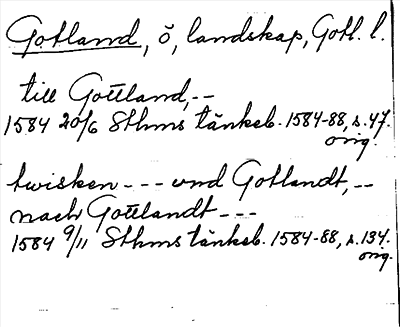 Gotland, ö, landskap, Gotl. l.
till Gottland, --
1584 20/6 Sthms tänkeb. 1584-88, s. 47.
orig.
twisken --- vnd Gotlandt, --
nach Gottlandt ---
1584 9/11 Sthms tänkeb. 1584-88, s. 134.
orig.